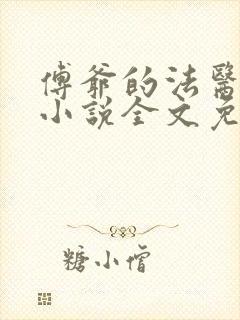 傅爺的法醫
小說全文免
糖小僧